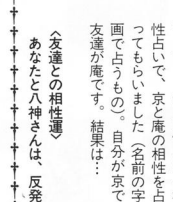 性占いで、京と庵の相性を占
ってもらいました（名前の字
画で占うもの）。自分が京で
友達が庵です。結果は…
〈友達との相性運〉
あなたと八神さんは、反発